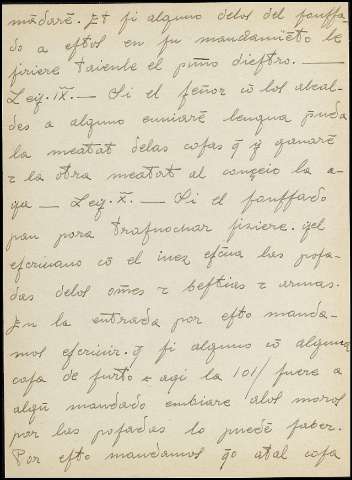 mādarē. Et si alguno delos del fonssa
do a estos en su mandamiēto le
firiere taienle el puño diestro. —
Ley. IX. — Si el señor cō los alcal-
des a alguno enuiarē lengua pūda
la meatat delas cosas q̄ y ganarē
τ la otra meatat al conçeio la a-
ya — Ley. X. — Si el fonssado
pan pora trasnochar fiziere. q̄el
escriuano cō el iuez escua las posa-
das delos om̄es τ bestias τ armas.
En la entrada por esto manda-
mos escriuir. q̄ si alguno cō alguna
cosa de furto τ aqi la 101/ fuere a
algū mandado embiare alos moros
por las posadas lo puedē saber.
Por esto mandamos q̄o atal cosa